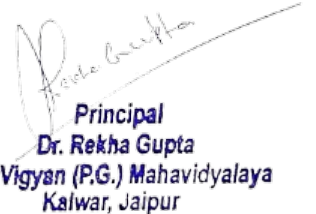 Rekha Gupta
Principal
Dr. Rekha Gupta
Vigyan (P.G.) Mahavidyalaya
Kalwar, Jaipur